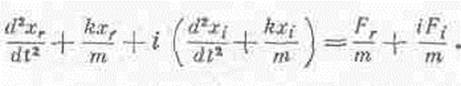 \frac{d^2x_r}{dt^2} + \frac{kx_r}{m} + i \left( \frac{d^2x_i}{dt^2} + \frac{kx_i}{m} \right) = \frac{F_r}{m} + \frac{iF_i}{m}.